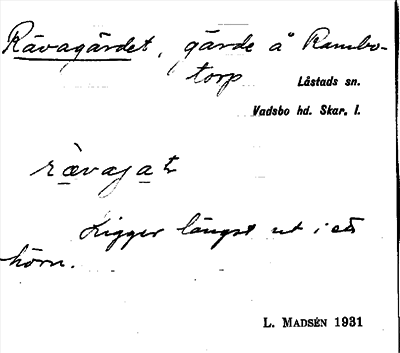 Rävagärdet, gärde å Rambo-
torp
Låstads sn.
Vadsbo hd. Skar. l.
Ligger längst ut i ett
hörn.
L. MADSÉN 1931